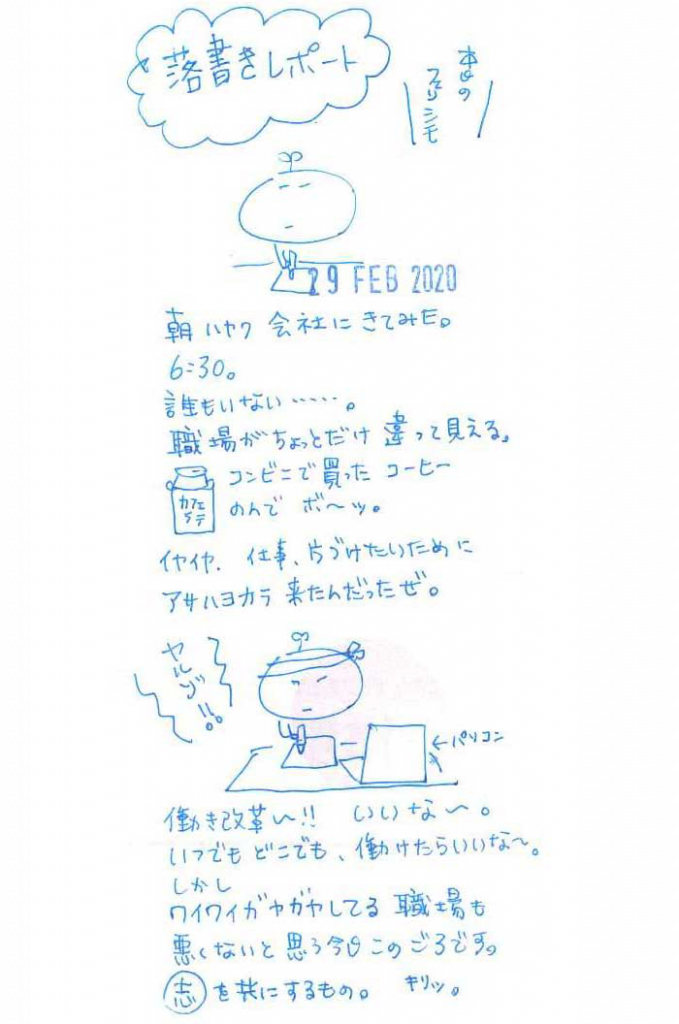 落書きレポート
本日の
フェリシモ
29 FEB 2020
朝ハヤク 会社に きてみた。
6:30。
誰もいない……。
職場がちょっとだけ 違って見える。
コンビニで買った コーヒー
カフェ
ラテ
のんで ボ〜ッ。
イヤイヤ、仕事、片づけたいために
アサハヨカラ 来たんだったぜ。
ヤルゾ!!。
←パソコン
働き改革〜!! いいな〜。
いつでも どこでも、働けたらいいな〜。
しかし
ワイワイガヤガヤしてる 職場も
悪くないと 思う今日このごろです。
志を共にするもの。 キリッ。